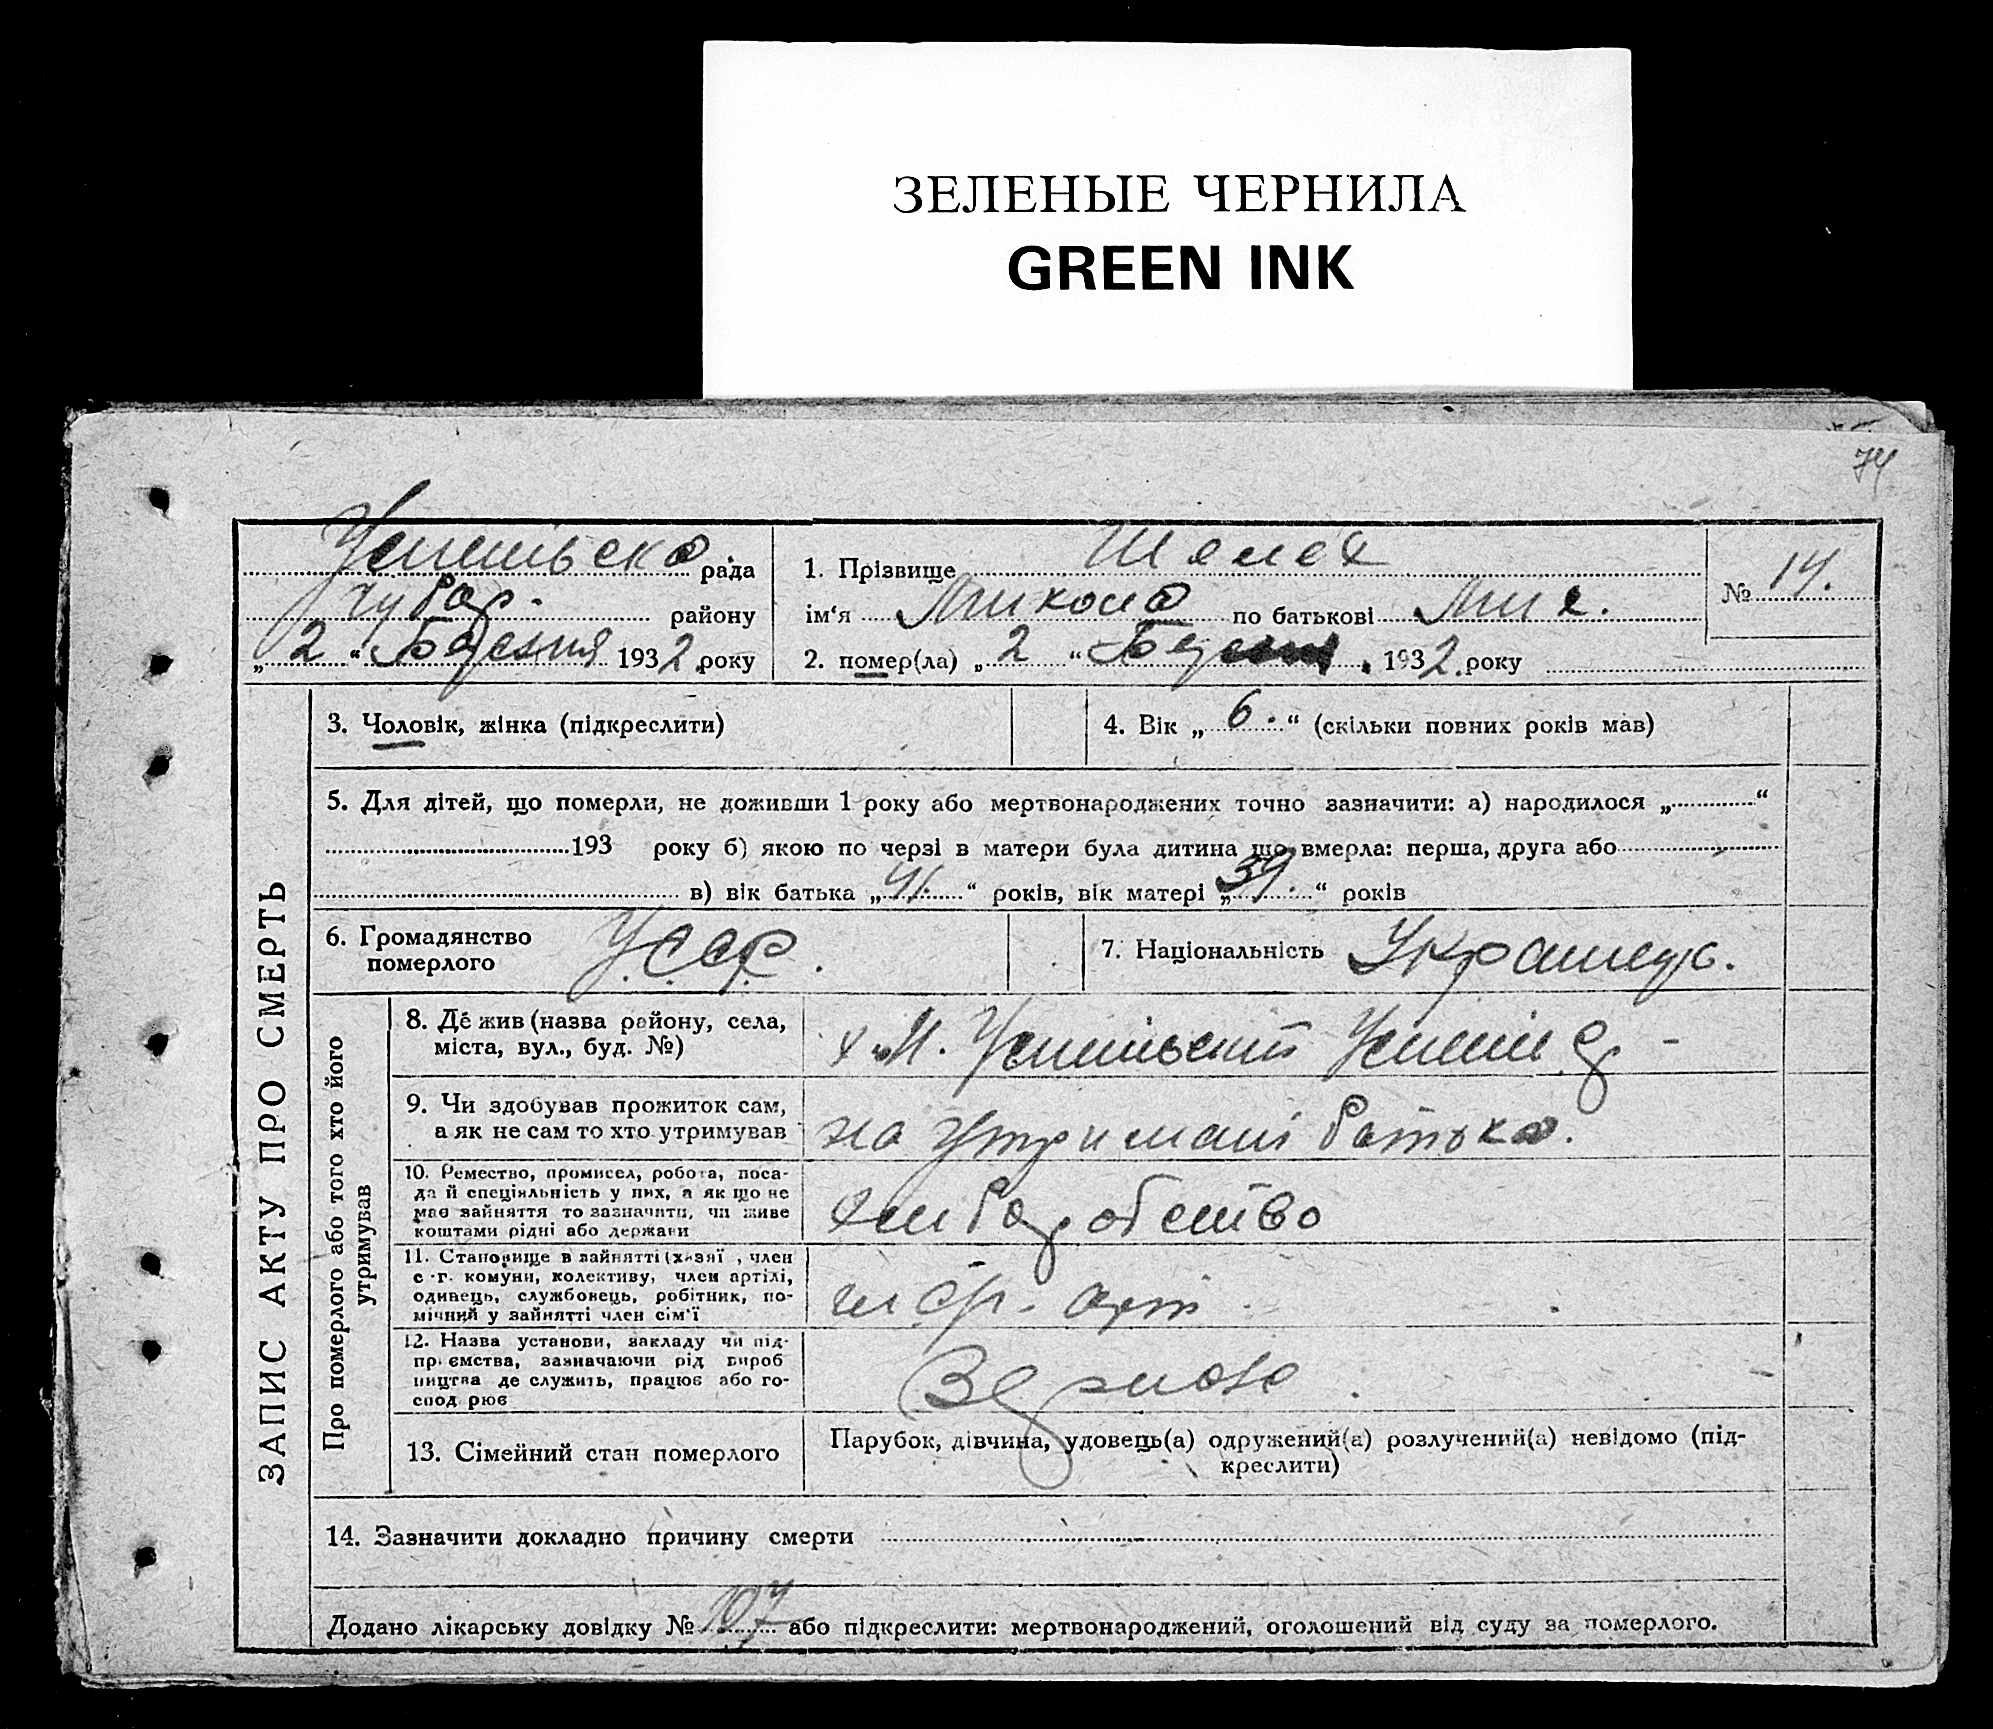 ЗЕЛЕНЫЕ ЧЕРНИЛА
GREEN INK
74
рада
Чубар. району
„2“ Березня 1932 року
1. Прізвище Шелех
ім‘я Микола по батькові
2. помер(ла) „2“ 1932. року
№ 14.
ЗАПИС АКТУ ПРО СМЕРТЬ
3. Чоловік, жінка (підкреслити)
4. Вік „6.“ (скільки повних років мав)
5. Для дітей, що померли, не доживши 1 року або мертвонароджених точно зазначити: а) народилося „ “
193 року б) якою по черзі в матери була дитина що вмерла: перша, друга або
в) вік батька „41.“ років, вік матері „39.“ років
6. Громадянство
померлого
УССР.
7. Національність Українець.
Про померлого або того хто його
утримував
8. Де жив (назва району, села,
міста, вул., буд. №)
9. Чи здобував прожиток сам,
а як не сам то хто утримував
на утримані батька.
10. Ремество, промисел, робота, поса-
да й спеціяльність у них, а як що не
має зайняття то зазначити, чи живе
коштами рідні або держави
хліборобство
11. Становище в зайнятті (хазяї , член
с.-г. комуни, колективу, член артілі,
одинець, службовець, робітник, по-
мічний у зайнятті член сім‘ї
арт.
12. Назва установи, закладу чи під-
приємства, зазначаючи рід вироб
ництва де служить, працює або го-
сподарює
13. Сімейний стан померлого
Парубок, дівчина, удовець(а) одружений(а) розлучений(а) невідомо (під-
креслити)
14. Зазначити докладно причину смерти
Додано лікарську довідку № 107 або підкреслити: мертвонароджений, оголошений від суду за померлого.